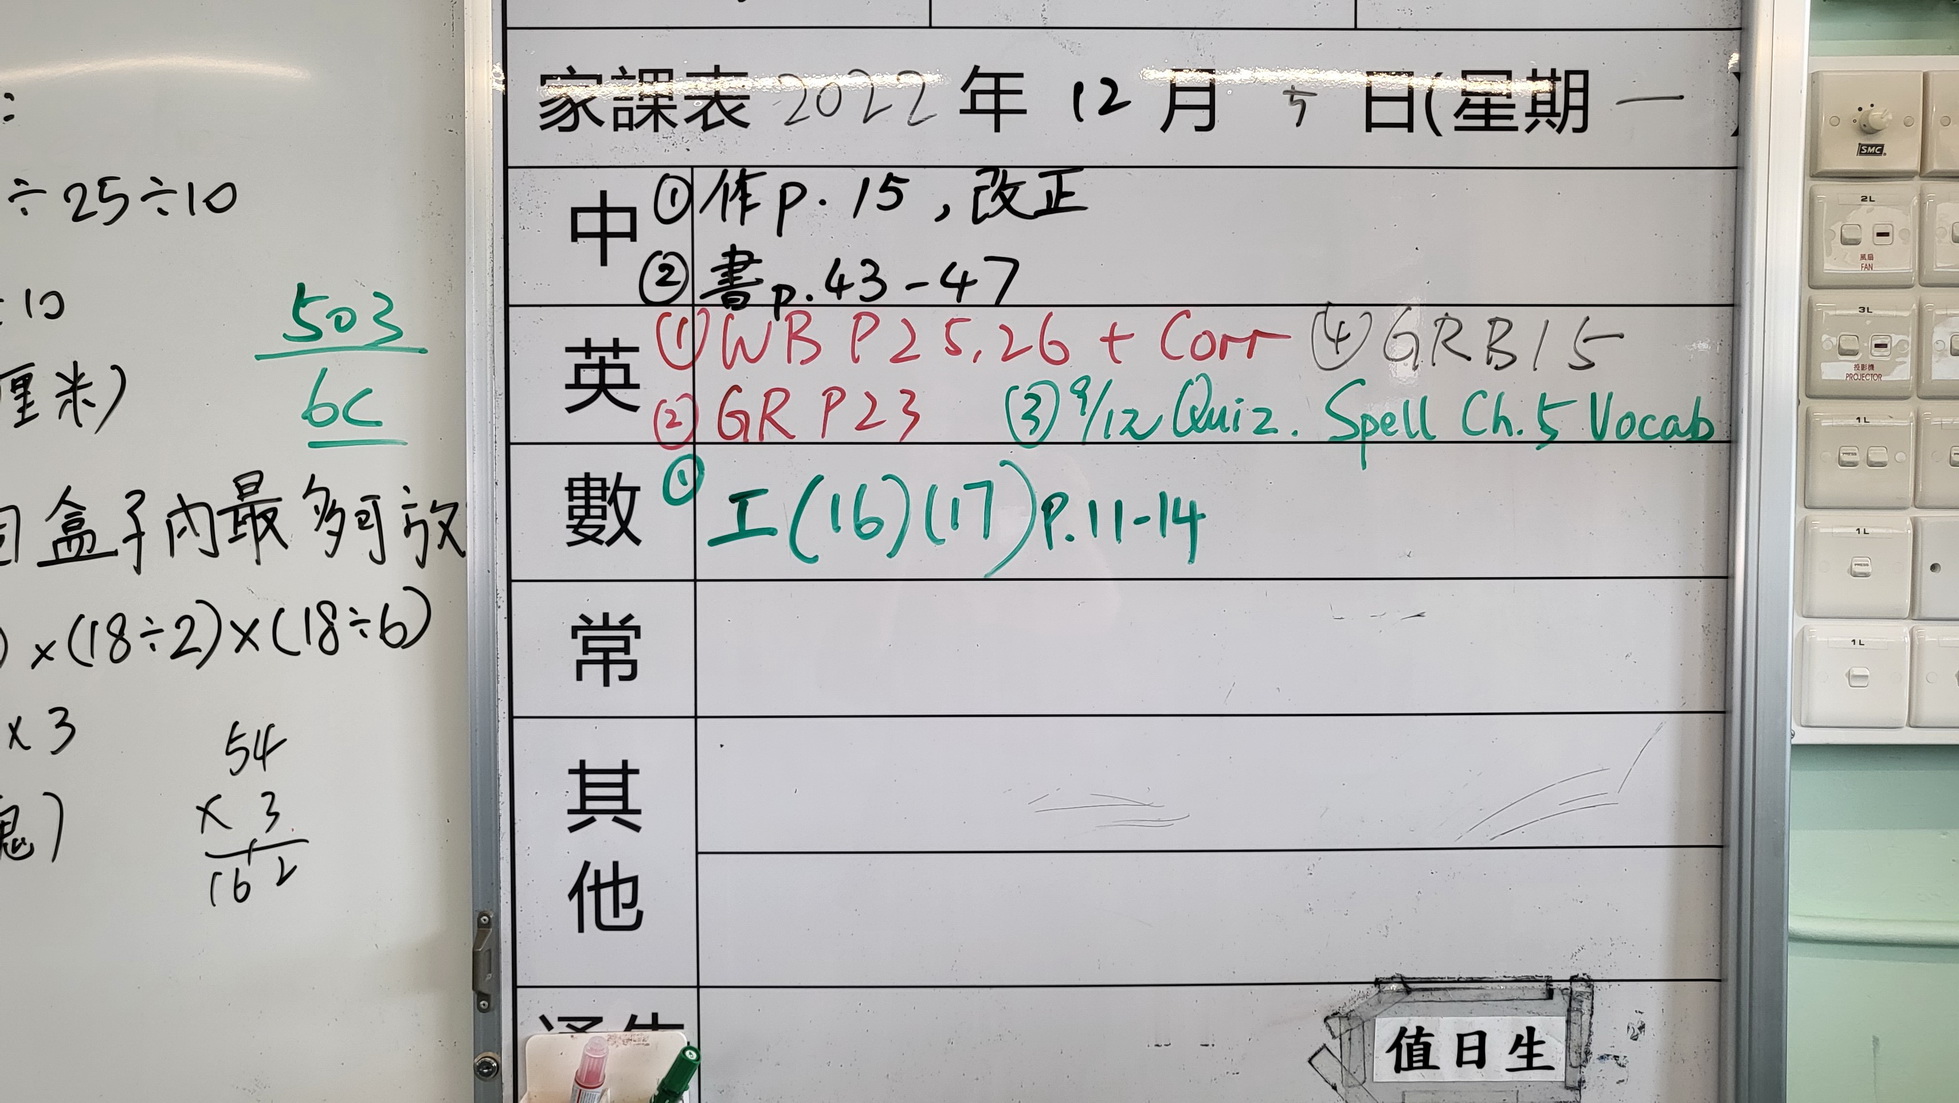 :
÷25÷10
÷10
厘米)
503
6C
盒子內最多可放
)×(18÷2)×(18÷6)
×3
54
×3
162
家課表 2022 年 12 月 5 日(星期一)
中
①作p.15,改正
②書p.43-47
英
①WB P25,26 + Corr ④GRB15
②GR P23 ③9/12 Quiz. Spell Ch.5 Vocab
數
①工(16)(17)p.11-14
常
其他
值日生
SMC
2L
風扇
FAN
3L
投影機
PROJECTOR
1L
1L
1L